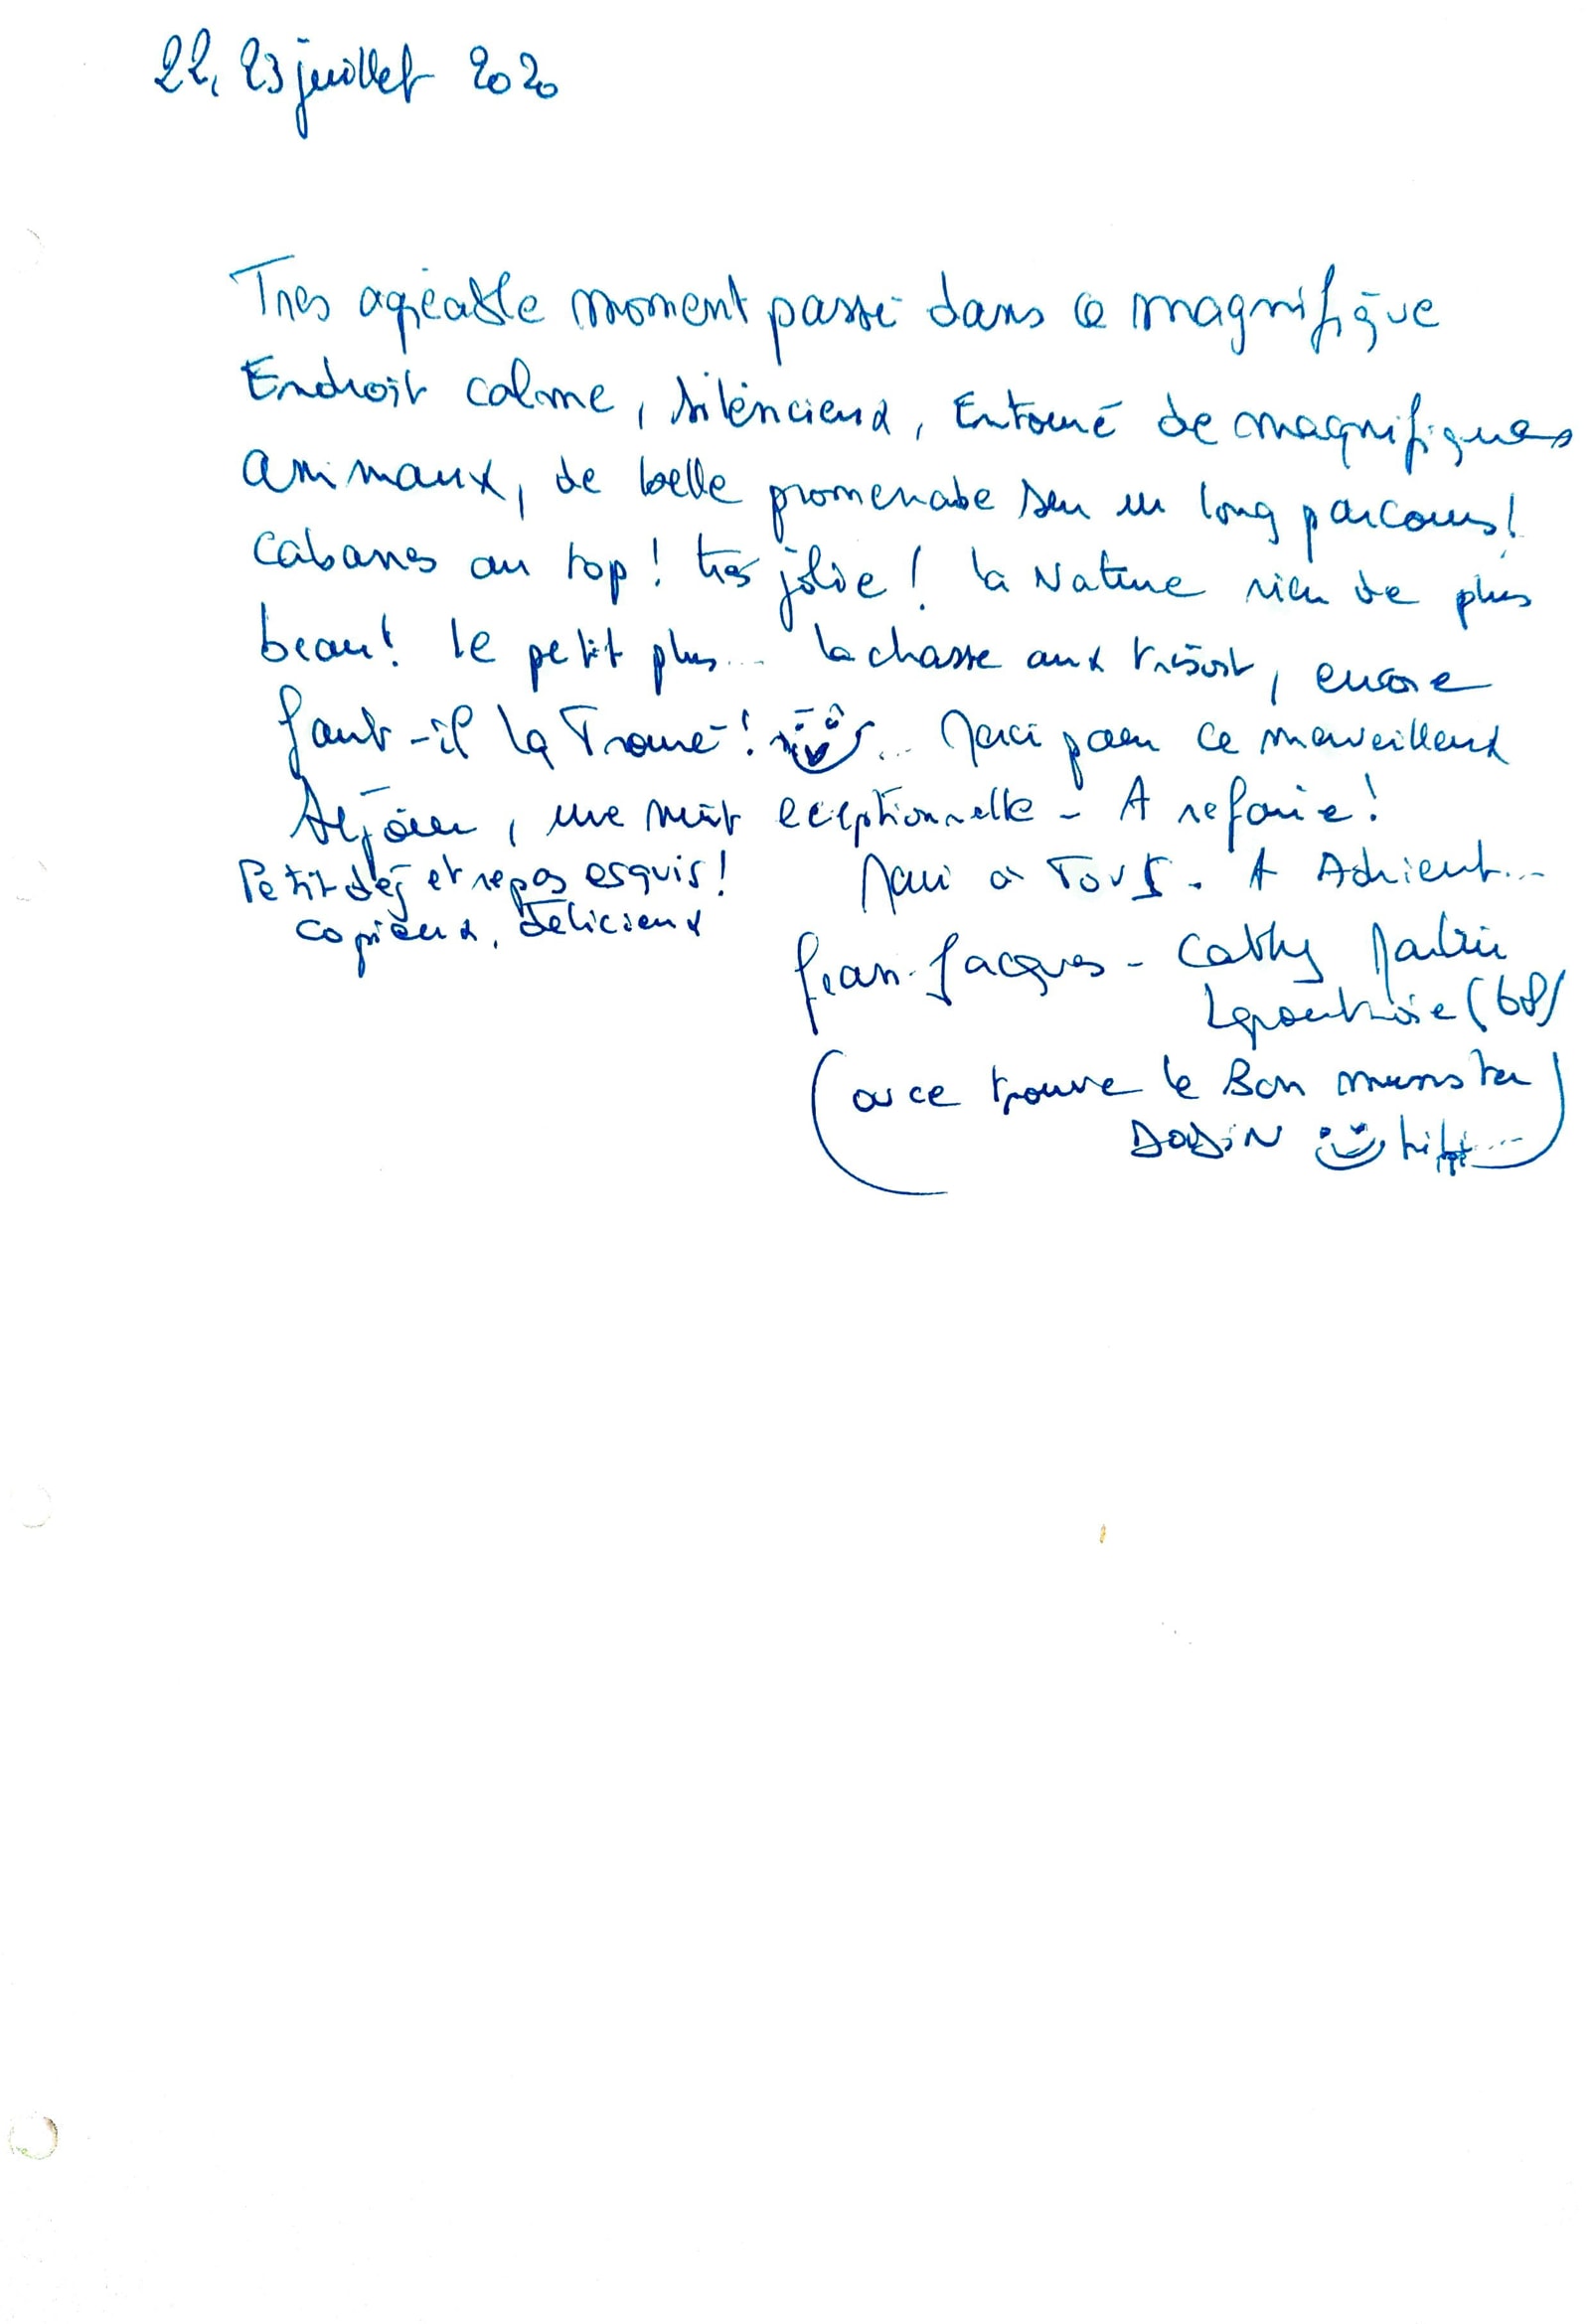 22, 23 juillet 2020
Tres agréable moment passé dans ce magnifique
Endroit calme, silencieux, Entouré de magnifiques
animaux, de belle promenade sur un long parcours!
Cabanes au top! très jolie! la Nature rien de plus
beau! le petit plus... la chasse aux trésort, encore
faut-il la Trouvé! ... Merci pour ce merveilleux
séjour, une nuit eceptionnelle - A refaire!
Petit dej et repas esquis!
copieux, délicieux
Merci à Tous. A Adrient...
Jean-Jacques - Cathy Martin
Lapoutroie (68)
(ou ce trouve le Bon munster
DODiN hihi...)